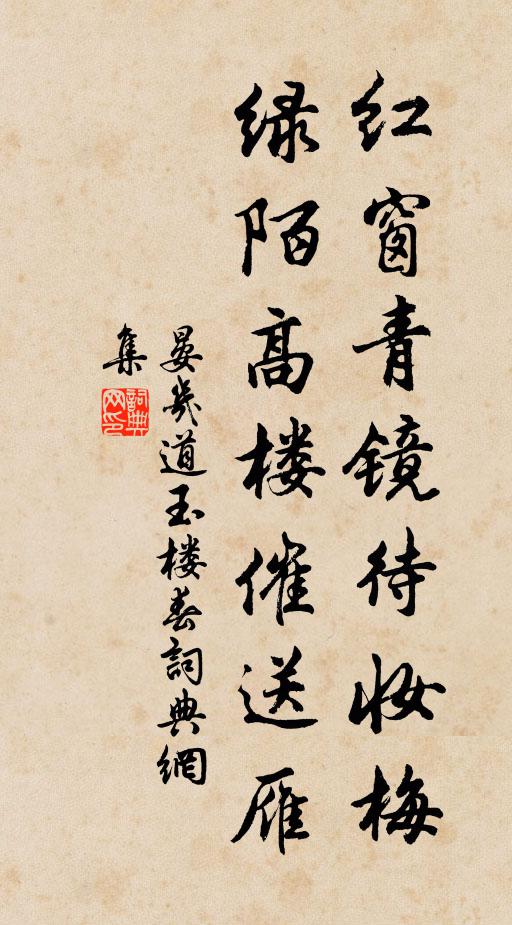 红窗青镜待妆梅
绿陌高楼催送雁
晏几道玉楼春詞典網
集
詞典
网印